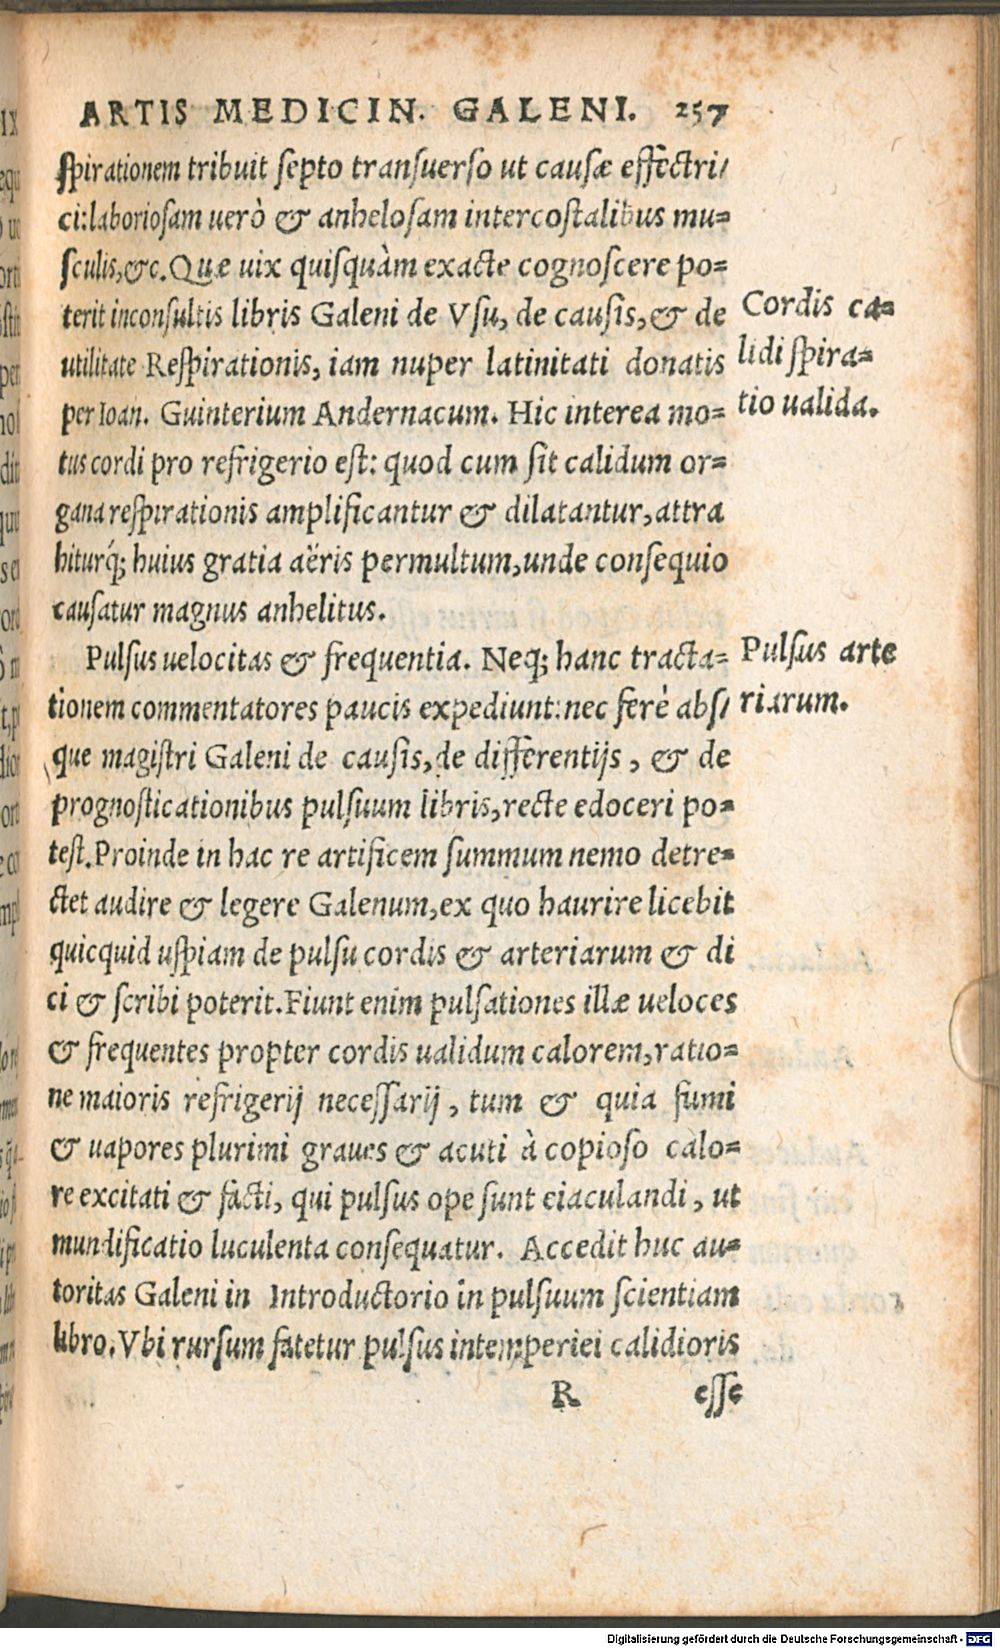 ARTIS MEDICIN. GALENI. 257
ſpirationem tribuit ſepto tranſuerſo ut cauſæ effectri/
ci: laborioſam uerò & anheloſam intercoſtalibus mu=
ſculis, &c. Quæ uix quiſquàm exacte cognoſcere po=
terit inconſultis libris Galeni de Vſu, de cauſis, & de
utilitate Reſpirationis, iam nuper latinitati donatis
per Ioan. Guinterium Andernacum. Hic interea mo=
tus cordi pro refrigerio eſt: quod cum ſit calidum or=
gana reſpirationis amplificantur & dilatantur, attra
hiturq́; huius gratia aëris permultum, unde conſequio
cauſatur magnus anhelitus.
Cordis ca=
lidi ſpira=
tio ualida.
Pulſus uelocitas & frequentia. Neq; hanc tracta=
tionem commentatores paucis expediunt: nec ferè abſ/
que magiſtri Galeni de cauſis, de differentijs, & de
prognoſticationibus pulſuum libris, recte edoceri po=
teſt. Proinde in hac re artificem ſummum nemo detre=
ctet audire & legere Galenum, ex quo haurire licebit
quicquid uſpiam de pulſu cordis & arteriarum & di
ci & ſcribi poterit. Fiunt enim pulſationes illæ ueloces
& frequentes propter cordis ualidum calorem, ratio=
ne maioris refrigerij neceſſarij, tum & quia fumi
& uapores plurimi graues & acuti à copioſo calo=
re excitati & facti, qui pulſus ope ſunt eiaculandi, ut
mundificatio luculenta conſequatur. Accedit huc au=
toritas Galeni in Introductorio in pulſuum ſcientiam
libro. Vbi rurſum fatetur pulſus intemperiei calidioris
Pulſus arte
riarum.
R eſſe
Digitalisierung gefördert durch die Deutsche Forschungsgemeinschaft - DFG